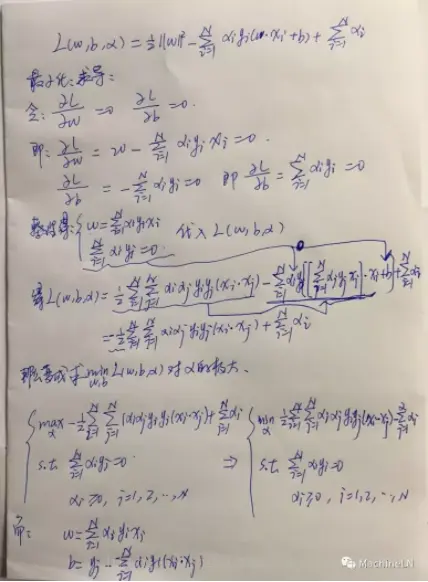 L(w,b,α) = ½||w||² - ∑_{i=1}^{N} αiyi(w·xi+b) + ∑_{i=1}^{N} αi
最小化:求导:
令: ∂L/∂w = 0 ∂L/∂b = 0.
即: ∂L/∂w = w - ∑_{i=1}^{N} αiyixi = 0.
∂L/∂b = -∑_{i=1}^{N} αiyi = 0 即 ∂L/∂b = ∑_{i=1}^{N} αiyi = 0
整理得: { w = ∑_{i=1}^{N} αiyixi
∑_{i=1}^{N} αiyi = 0. 代入 L(w,b,α)
得 L(w,b,α) = ½ ∑_{i=1}^{N} ∑_{j=1}^{N} αiαjyiyj(xi·xj) - ∑_{i=1}^{N} αiyi[[∑_{j=1}^{N} αjyjxj]·xi+b] + ∑_{i=1}^{N} αi
= -½ ∑_{i=1}^{N} ∑_{j=1}^{N} αiαjyiyj(xi·xj) + ∑_{i=1}^{N} αi
min_{w,b} L(w,b,α) 对α的极大.
{ max_α -½ ∑_{i=1}^{N} ∑_{j=1}^{N} (αiαjyiyj(xi·xj)) + ∑_{i=1}^{N} αi ⇒ { min_α ½ ∑_{i=1}^{N} ∑_{j=1}^{N} αiαjyiyj(xi·xj) - ∑_{i=1}^{N} αi
s.t. ∑_{i=1}^{N} αiyi = 0. s.t. ∑_{i=1}^{N} αiyi = 0
αi ≥ 0, i=1,2,···,N αi ≥ 0, i=1,2,···,N
w = ∑_{i=1}^{N} αiyixi
b = yj - ∑_{i=1}^{N} αiyi(xi·xj)
MachineLN